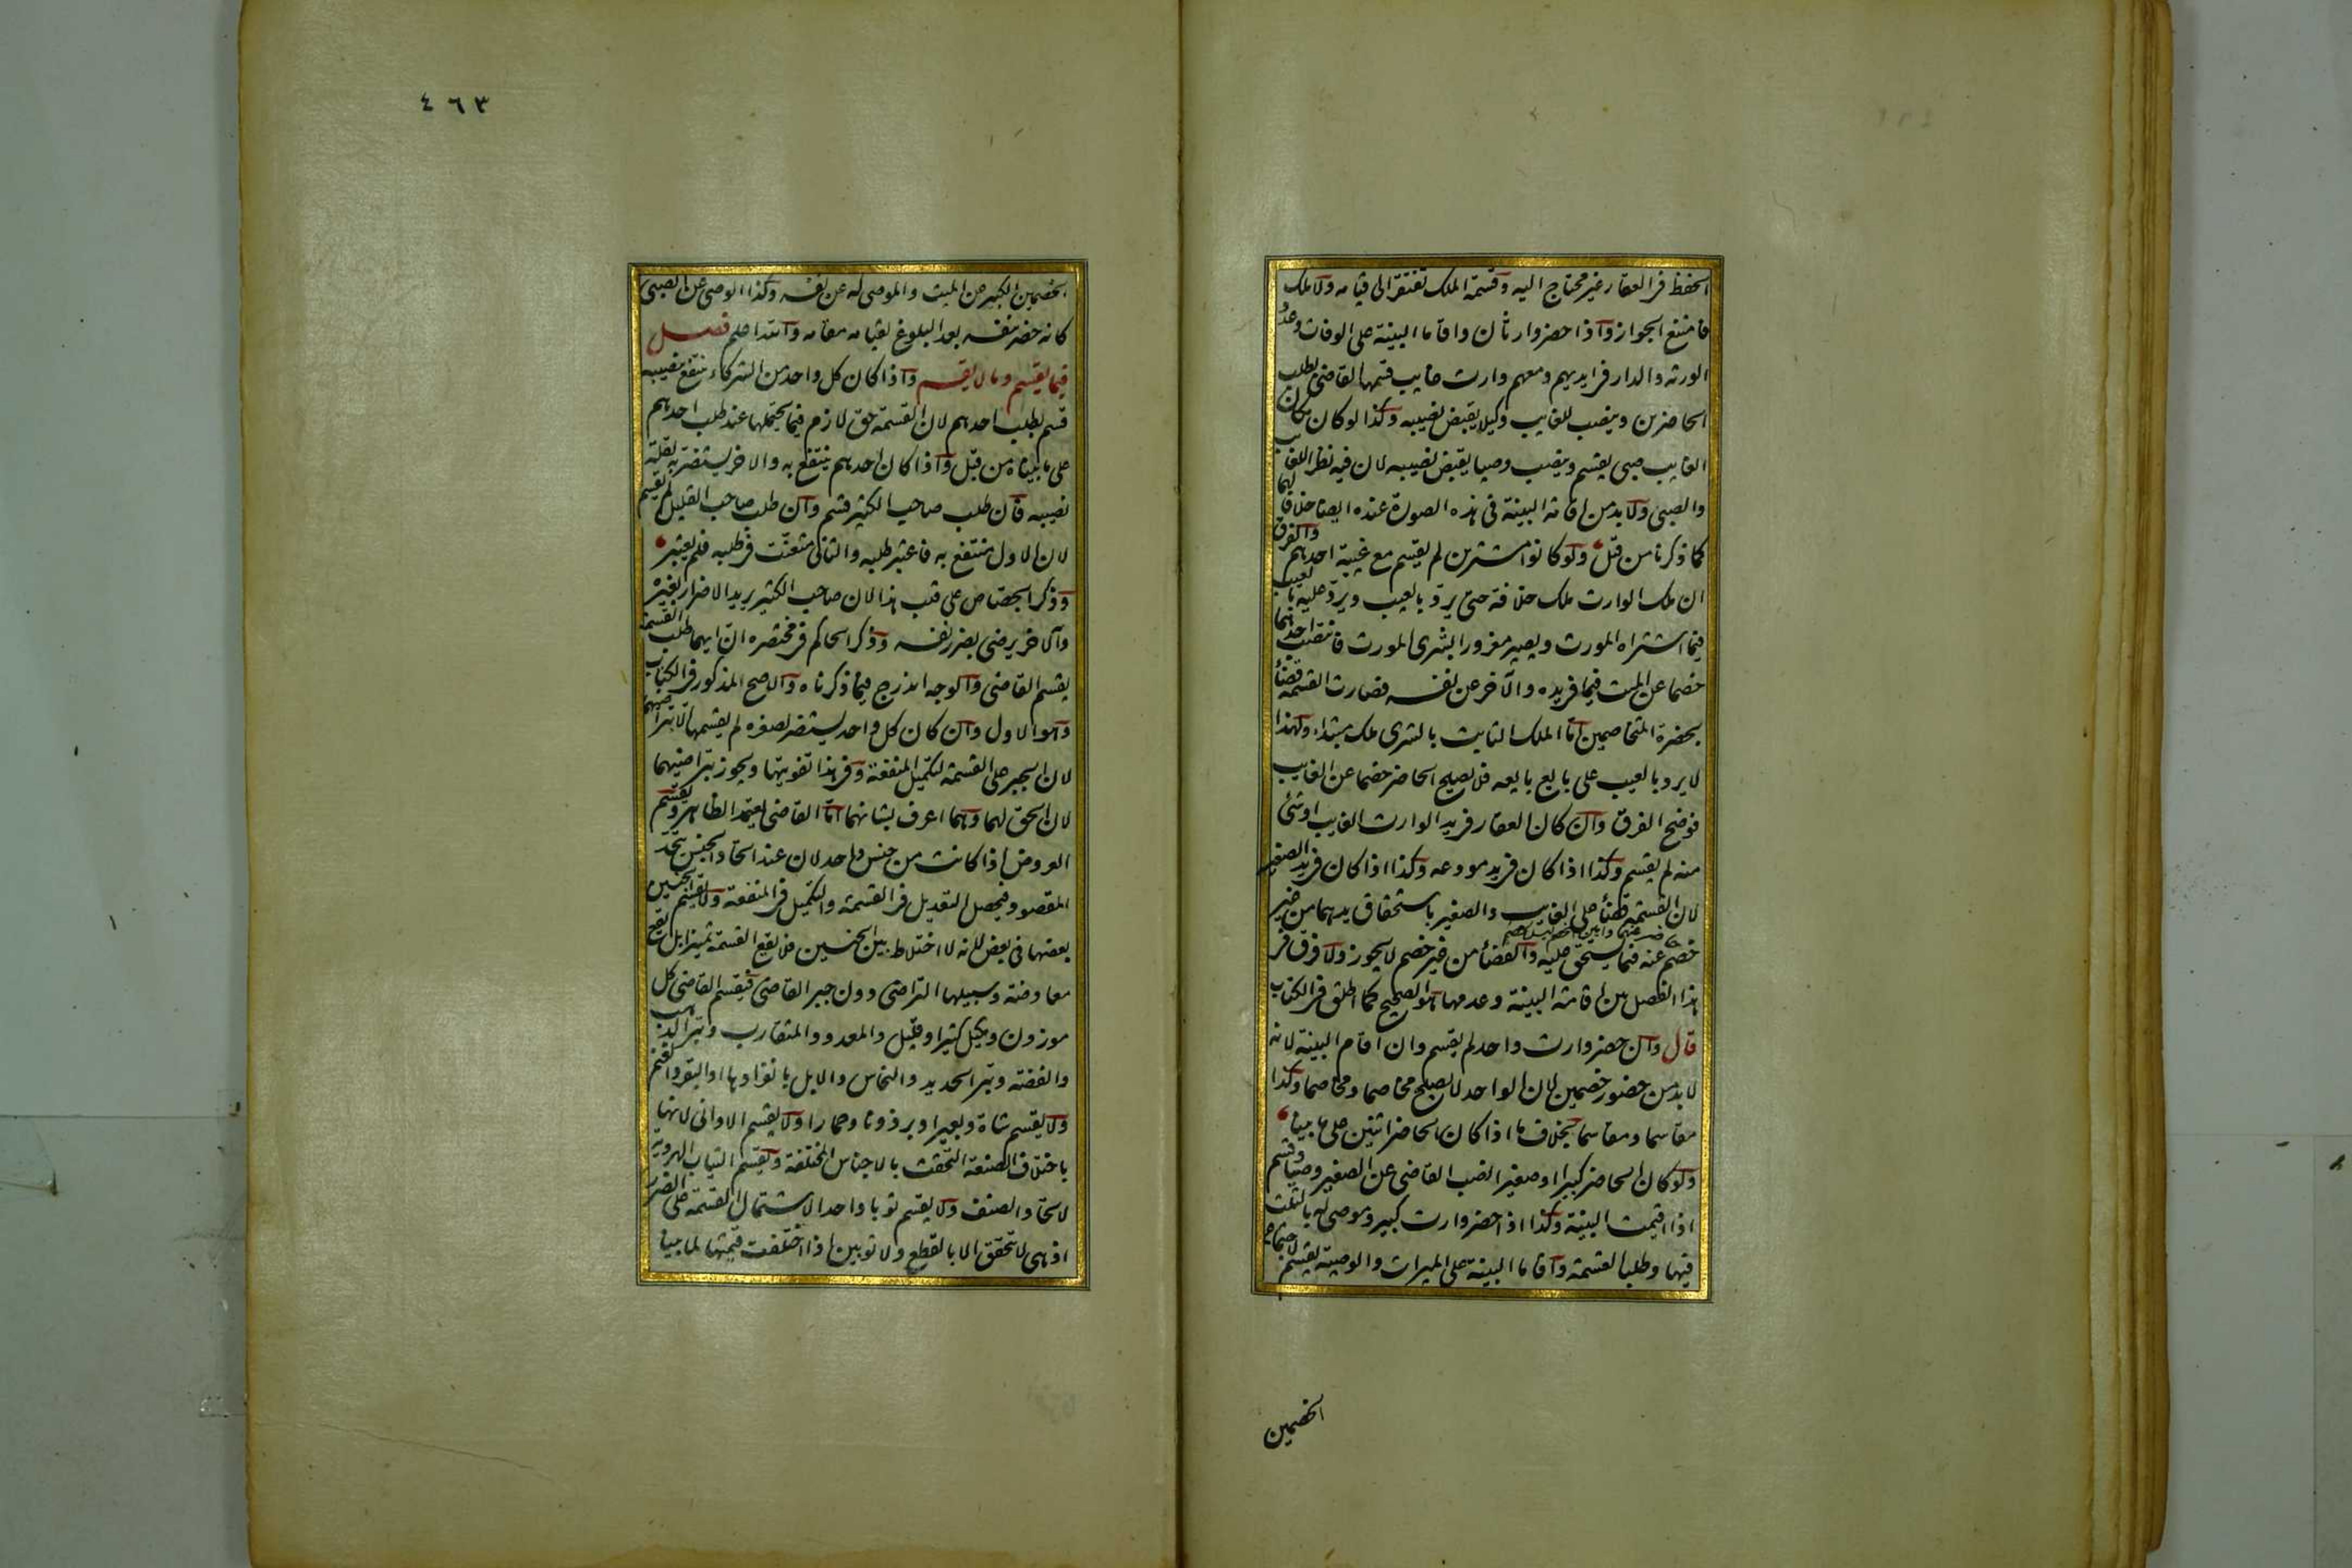 الحفظ فى العقار غير محتاج اليه وقسمة الملك تفتقر الى قيامه ولا ملك
فامتنع الجواز واذا حضر وارثان واقاما البينة على الوفات وعدد
الورثه والدار فى ايديهم ومعهم وارث غايب قسمها القاضى بطلب
الحاضرين وينصب للغايب وكيلا يقبض نصيبه وكذا لو كان مكان
الغايب صبى يقسم وينصب وصيا يقبض نصيبه لان فيه نظرا للغايب
والصبى ولا بد من اقامة البينة فى هذه الصورة عنده ايضا خلافا لهما
كما ذكرنا من قبل ولو كانوا مشترين لم يقسم مع غيبة احدهم والفرق
ان ملك الوارث ملك خلافة حتى يرد بالعيب ويرد عليه بالعيب
فيما اشتراه المورث ويصير مغرورا بشرى المورث فانتصب احدهما
خصما عن الميت فيما فى يده والاخر عن نفسه فصارت القسمة قضأ
بحضرة المتخاصمين اما الملك الثابت بالشرى ملك مبتداء ولهذا
لا يرد بالعيب على بايع بايعه فلا يصلح الحاضر خصما عن الغايب
فوضح الفرق وان كان العقار فى يد الوارث الغايب او شئ
منه لم يقسم وكذا اذا كان فى يد مودعه وكذا اذا كان فى يد الصغير
لان القسمة قضأ على الغايب والصغير باستحقاق يدهما من غير
خصم حاضر عنهما وامين الخصم ليس بخصم عنه فيما يستحق عليه والقضأ من غير خصم لا يجوز ولا فرق فى
هذا الفصل بين اقامة البينة وعدمها هو الصحيح كما اطلق فى الكتاب
قال وان حضر وارث واحد لم يقسم وان اقام البينة لانه
لا بد من حضور خصمين لان الواحد لا يصلح مخاصما ومخاصما وكذا
مقاسما ومقاسما بخلاف ما اذا كان الحاضر اثنين على ما بينا
ولو كان الحاضر كبيرا وصغيرا نصب القاضى عن الصغير وصيا وقسم
اذا اقيمت البينة وكذا اذا حضر وارث كبير وموصى له بالثلث
فيها وطلبا القسمة واقاما البينة على الميراث والوصية يقسم لاجتماع
الخصمين
٤٦٣
الخصمين الكبير عن الميت والموصى له عن نفسه وكذا الوصى عن الصبى
كانه حضر بنفسه بعد البلوغ لقيامه مقامه والله اعلم فصل
فيما يقسم وما لا يقسم واذا كان كل واحد من الشركاء ينتفع بنصيبه
قسم بطلب احدهم لان القسمة حق لازم فيما يحتملها عند طلب احدهم
على ما بيناه من قبل واذا كان احدهم ينتفع به والاخر يستضر به لقلة
نصيبه فان طلب صاحب الكثير قسم وان طلب صاحب القليل لم يقسم
لان الاول منتفع به فاعتبر طلبه والثانى متعنت فى طلبه فلم يعتبر
وذكر الجصاص على قلب هذا لان صاحب الكثير يريد الاضرار بغيره
والاخر يرضى بضرر نفسه وذكر الحاكم فى مختصره ان ايهما طلب القسمة
يقسم القاضى والوجه اندرج فيما ذكرناه والاصح المذكور فى الكتاب
وهو الاول وان كان كل واحد يستضر لصغره لم يقسمها الا بتراضيهما
لان الجبر على القسمة لتكميل المنفعة وفى هذا تفويتها ويجوز بتراضيهما
لان الحق لهما وهما اعرف بشانهما اما القاضى يعتمد الظاهر ويقسم
العروض اذا كانت من جنس واحد لان عند اتحاد الجنس يتحد
المقصود فيحصل التعديل فى القسمة والتكميل فى المنفعة ولا يقسم الجنسين
بعضهما فى بعض لانه لا اختلاط بين الجنسين فلا يقع القسمة تميزا بل يقع
معاوضة وسبيلها التراضى دون جبر القاضى فيقسم القاضى كل
موزون ومكيل كثير او قليل والمعدود المتقارب وتبر الذهب
والفضة وتبر الحديد والنحاس والابل بانفرادها او البقر او الغنم
ولا يقسم شاة وبعيرا وبرذونا وحمارا ولا يقسم الاوانى لانها
باختلاف الصنعة التحقت بالاجناس المختلفة ويقسم الثياب الهروية
لاتحاد الصنف ولا يقسم ثوبا واحدا لاشتمال القسمة على الضرر
اذ هى لا تتحقق الا بالقطع ولا ثوبين اذا اختلفت قيمتهما لما بينا